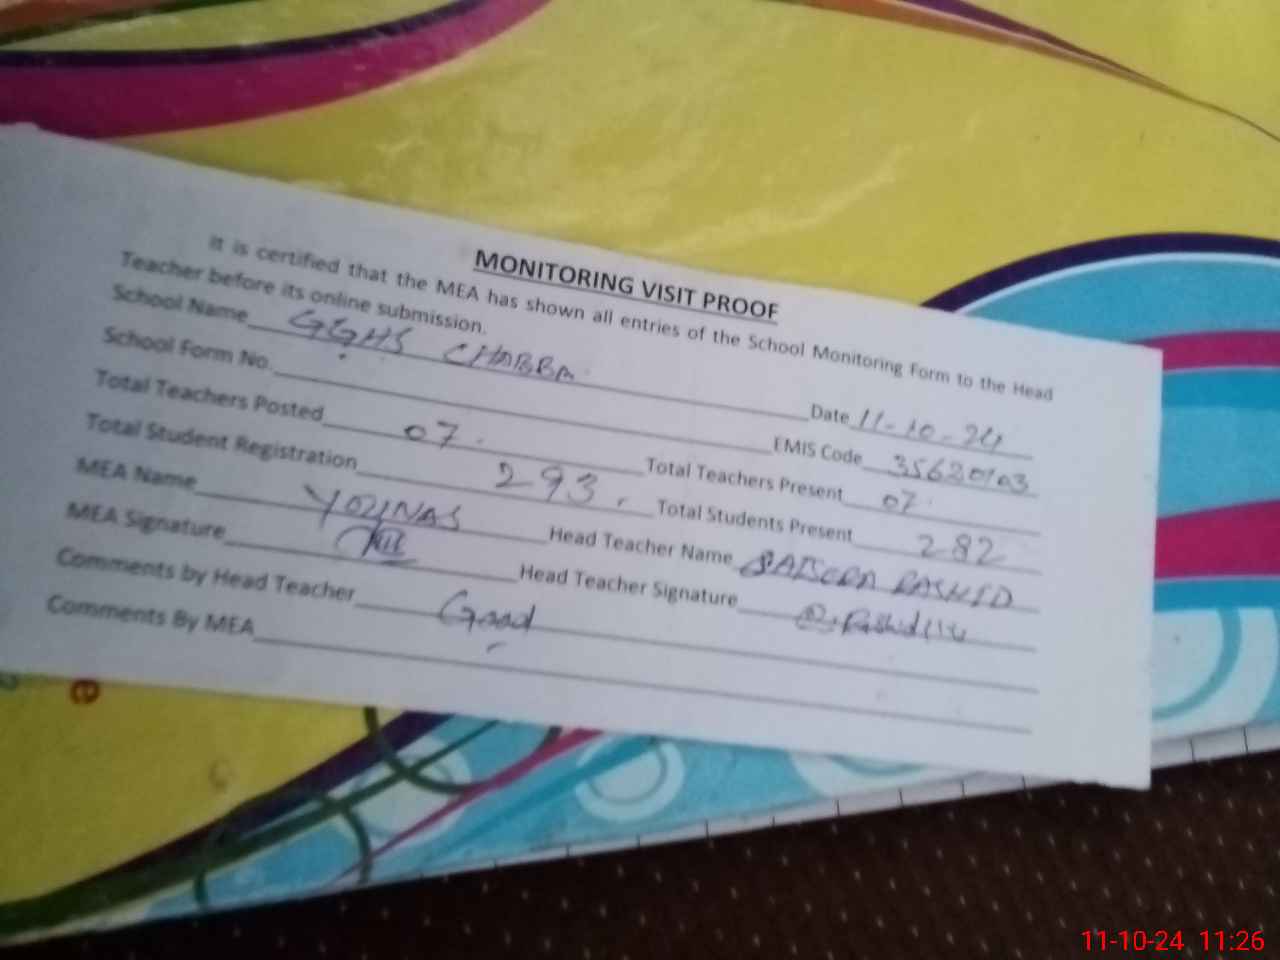 MONITORING VISIT PROOF
It is certified that the MEA has shown all entries of the School Monitoring Form to the Head
Teacher before its online submission.
School Name GGHS CHABBA. Date 11-10-24
School Form No. EMIS Code 35620103
Total Teachers Posted 07. Total Teachers Present 07.
Total Student Registration 293. Total Students Present 282
MEA Name YOUNAS Head Teacher Name RASHID
MEA Signature Head Teacher Signature
Comments by Head Teacher Good
Comments By MEA
e
11-10-24 11:26